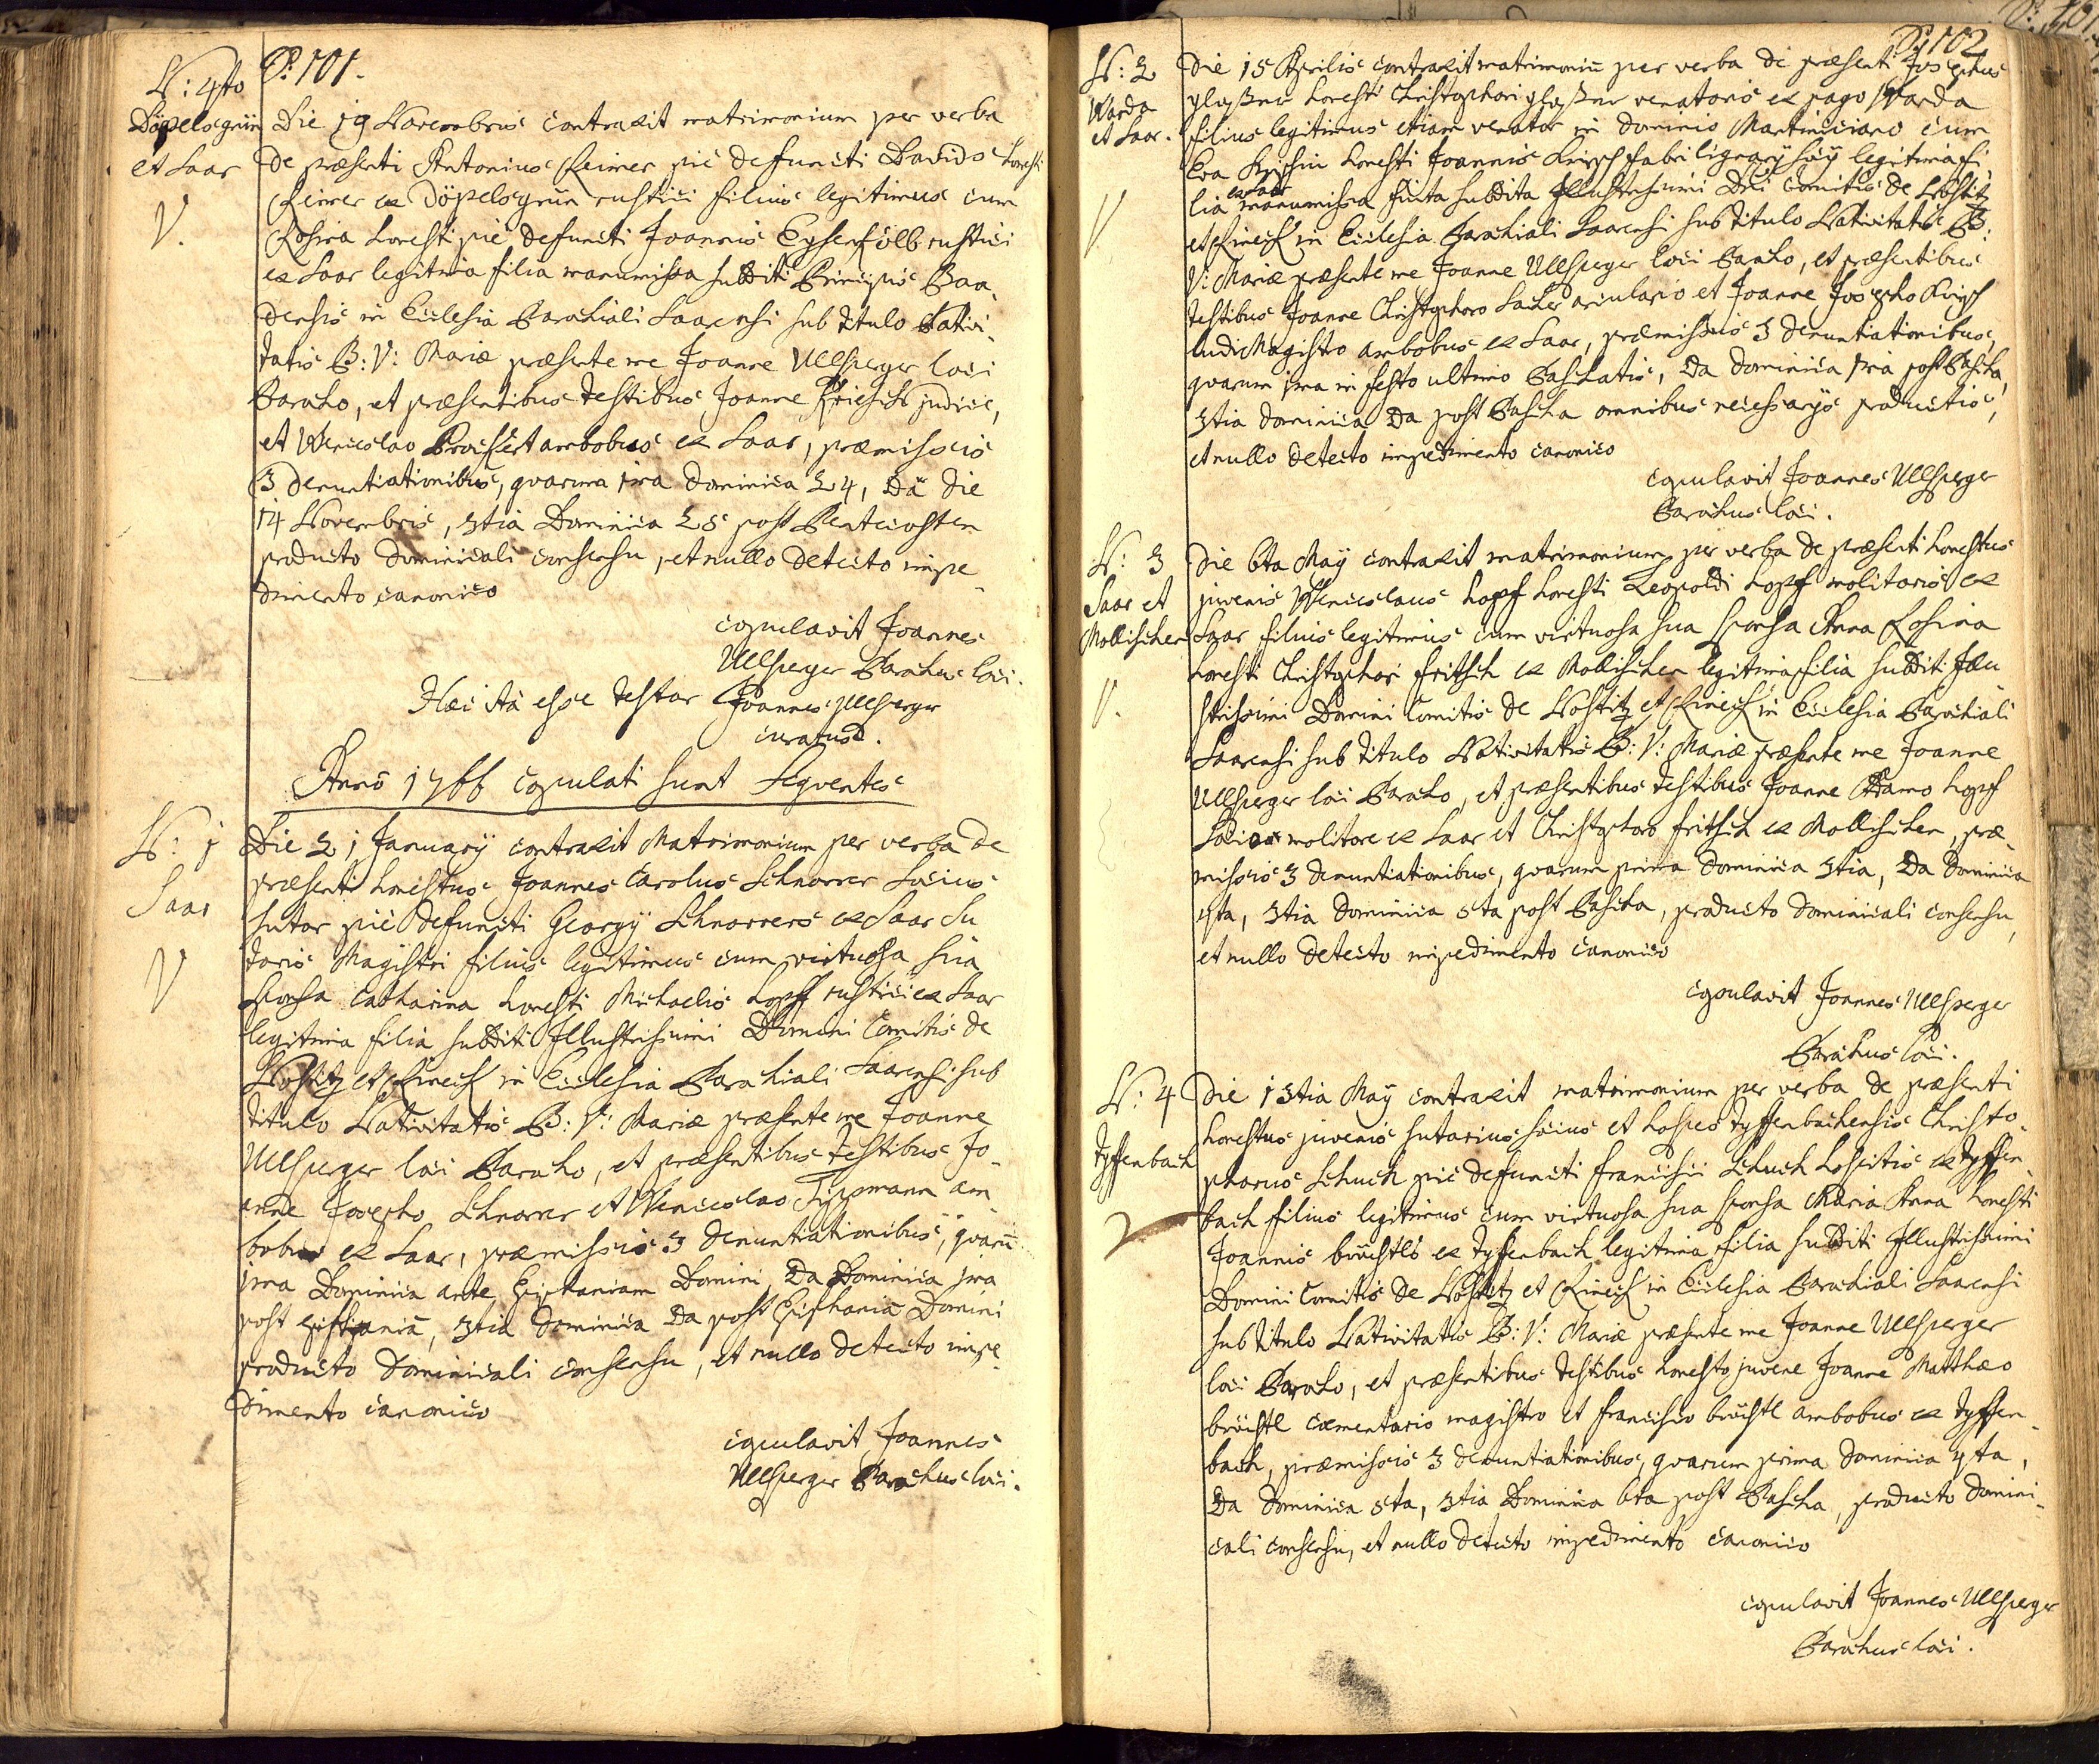 P: 101.
N: 4to
Döpelsgrün
et Saar
V.
Die 19 Novembris contraxit matrimonium per verba
de præsenti Antonius Reimer pie defuncti Davids honesti
Reimer ex Döpelsgrün rustici filius legitimus cum
Rosina honesti pie defuncti Joannis Eysenkolb rustici
ex Saar legitima filia manumissa subditi Principis Baa-
densis in Ecclesia Parochiali Saarensi sub titulo Nativi-
tatis B: V: Mariæ præsente me Joanne Ullsperger loci
Parocho, et præsentibus testibus Joanne Kriesch judice,
et Wenceslao ambobus ex Saar, præmissis
3 denuntiationibus, quarum 1ma Dominica 24, 2da die
14 Novembris, 3tia Dominica 25 post Pentecosten
producto Dominicali consensu, et nullo detecto impe-
dimento canonico
copulavit Joannes
Ullsperger Parochus loci.
Hæc ità esse testor Joannes Ullsperger
curatus.
Anno 1766 copulati sunt Sequentes
N: 1
Saar
V
Die 21 January contraxit Matrimonium per verba de
præsenti honestus Joannes Carolus Schnorrer Socius
sutor pie defuncti Georgÿ Schnorrers ex Saar Su
toris Magistri filius legitimus cum virtuosa sua
Sponsa Catharina honesti Michaelis Hopff rustici ex Saar
legitima filia subditi Illustrissimi Domini Comitis de
Nostitz et Rineck in Ecclesia Parochiali Saarensi sub
titulo Nativitatis B: V: Mariæ præsente me Joanne
Ullsperger loci Parocho, et præsentibus testibus Jo-
anne Josepho Schnorrer et Wenceslao Tippmann am-
bobus ex Saar, præmissis 3 denuntiationibus, quarū
1ma Dominica ante Epiphaniam Domini, 2da Dominica 1ma
post Epiphaniā, 3tia Dominica 2da post Epiphaniā Domini
producto Dominicali consensu, et nullo detecto impe-
dimento canonico
copulavit Joannes
Ullsperger Parochus loci.
P: 102
N: 2
Warda
et Saar.
V
Die 15 Aprilis contraxit matrimoniū per verba de præsenti Josephus
gloßner honesti Christophori gloßner venatoris ex pago Warda
filius legitimus etiam venator in Dominio Martiniciano cum
Eva honesti Joannis fabri lignarÿ legitima fi
lia ex Saar manumissa subdita Illustrissimi Dni Comitis de Nostitz
et Rineck in Ecclesia Parochiali Saarensi sub titulo Nativitatis B:
V: Mariæ præsente me Joanne Ullsperger loci Parocho, et præsentibus
testibus Joanne Christophoro Sacher acculario et Joanne Josepho
ludi Magistro ambobus ex Saar, præmissis 3 denuntiationibus,
quarum 1ma in festo ultimo Paschatis, 2da Dominica 1ma post Pascha,
3tia Dominica 2da post Pascha omnibus necessarÿs productis,
et nullo detecto impedimento canonico
copulavit Joannes Ullsperger
Parochus loci.
N: 3
Saar et
Mollischen
V.
Die 6ta Maÿ contraxit matrimonium per verba de præsenti honestus
juvenis Wenceslaus Hopf honesti Leopoldi Hopf molitoris ex
Saar filius legitimus cum virtuosa sua sponsa Anna Rosina
honesti Christophori fritsch ex Mollischen legitima filia subditi Illu
strissimi Domini Comitis de Nostitz et Rineck in Ecclesia Parochiali
Saarensi sub titulo Nativitatis B: V: Mariæ præsente me Joanne
Ullsperger loci Parocho, et præsentibus testibus Joanne Adamo Hopf
molitore ex Saar et Christophoro fritsch ex Mollischen, præ-
missis 3 denuntiationibus, quarum prima Dominica 3tia, 2da Dominica
4ta, 3tia Dominica 5ta post Pascha, producto Dominicali consensu,
et nullo detecto impedimento canonico
copulavit Joannes Ullsperger
Parochus loci.
N: 4
Tyffenbach
Die 13tia Maÿ contraxit matrimonium per verba de præsenti
honestus juvenis sutorius socius et hospes Tyffenbachensis Christo-
phorus Schuch pie defuncti francisci Schuch hospitis ex Tyffen-
bach filius legitimus cum virtuosa sua sponsa Maria Anna honesti
Joannis brüchtls ex Tyffenbach legitima filia subditi Illustrissimi
Domini Comitis de Nostitz et Rineck in Ecclesia Parochiali Saarensi
sub titulo Nativitatis B: V: Mariæ præsente me Joanne Ullsperger
loci Parocho, et præsentibus testibus honesto juvene Joanne Matthæo
brüchtl cæmentario magistro et francisco brüchtl ambobus ex Tyffen-
bach, præmissis 3 denuntiationibus, quarum prima Dominica 4ta,
2da Dominica 5ta, 3tia Dominica 6ta post Pascha, producto Domini-
cali consensu, et nullo detecto impedimento canonico
copulavit Joannes Ullsperger
Parochus loci.